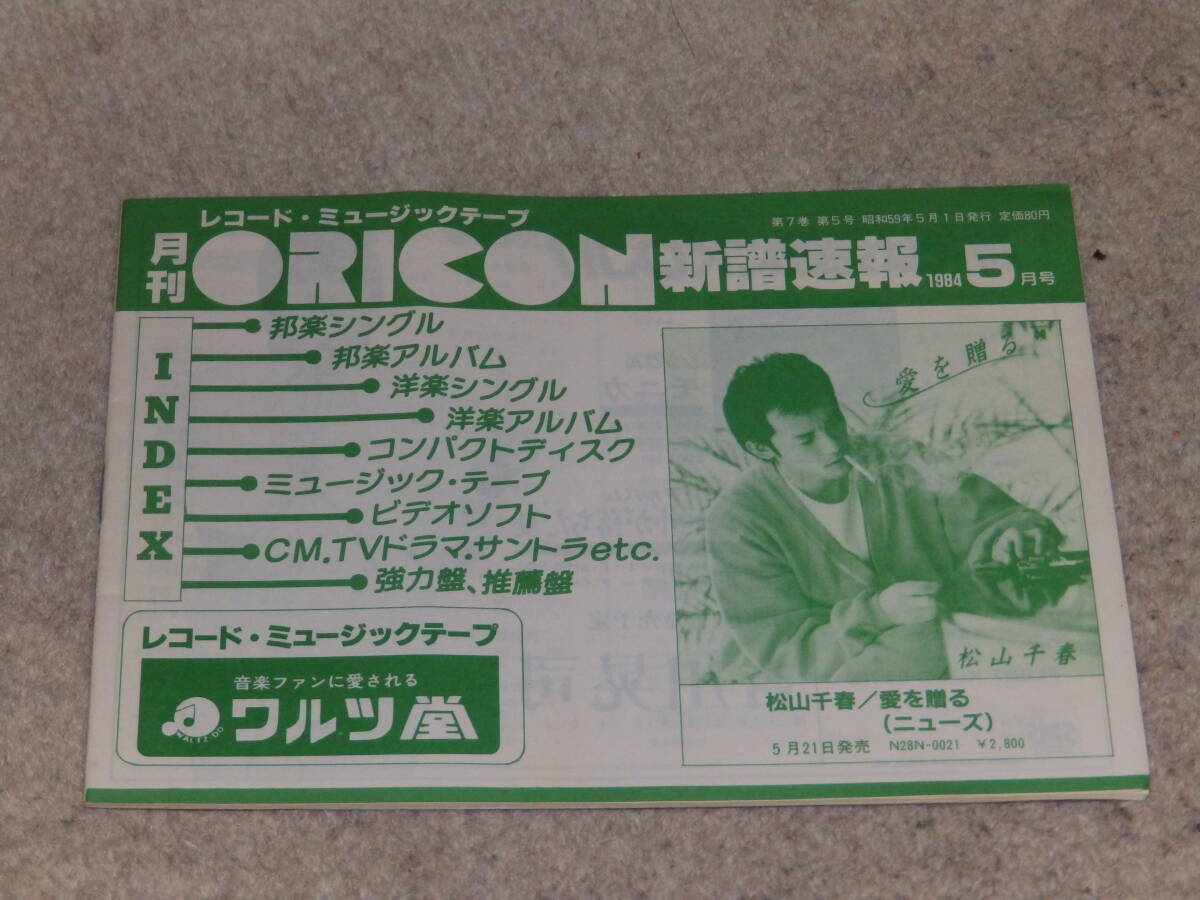 レコード・ミュージックテープ
第7巻 第5号 昭和59年5月1日発行 定価80円
月刊 ORICON 新譜速報 1984 5月号
INDEX
邦楽シングル
邦楽アルバム
洋楽シングル
洋楽アルバム
コンパクトディスク
ミュージック・テープ
ビデオソフト
CM.TVドラマ.サントラetc.
強力盤、推薦盤
レコード・ミュージックテープ
音楽ファンに愛される
WALTZ-DO
ワルツ堂
愛を贈る
松山千春
松山千春/愛を贈る
(ニューズ)
5月21日発売 N28N-0021 ¥2,800
モニカ